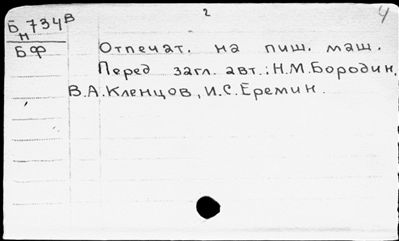 2
4
Бн734В
БФ Отпечат. на пиш. маш.
Перед загл. авт.: Н.М.Бородин,
В.А.Кленцов, И.С.Еремин.